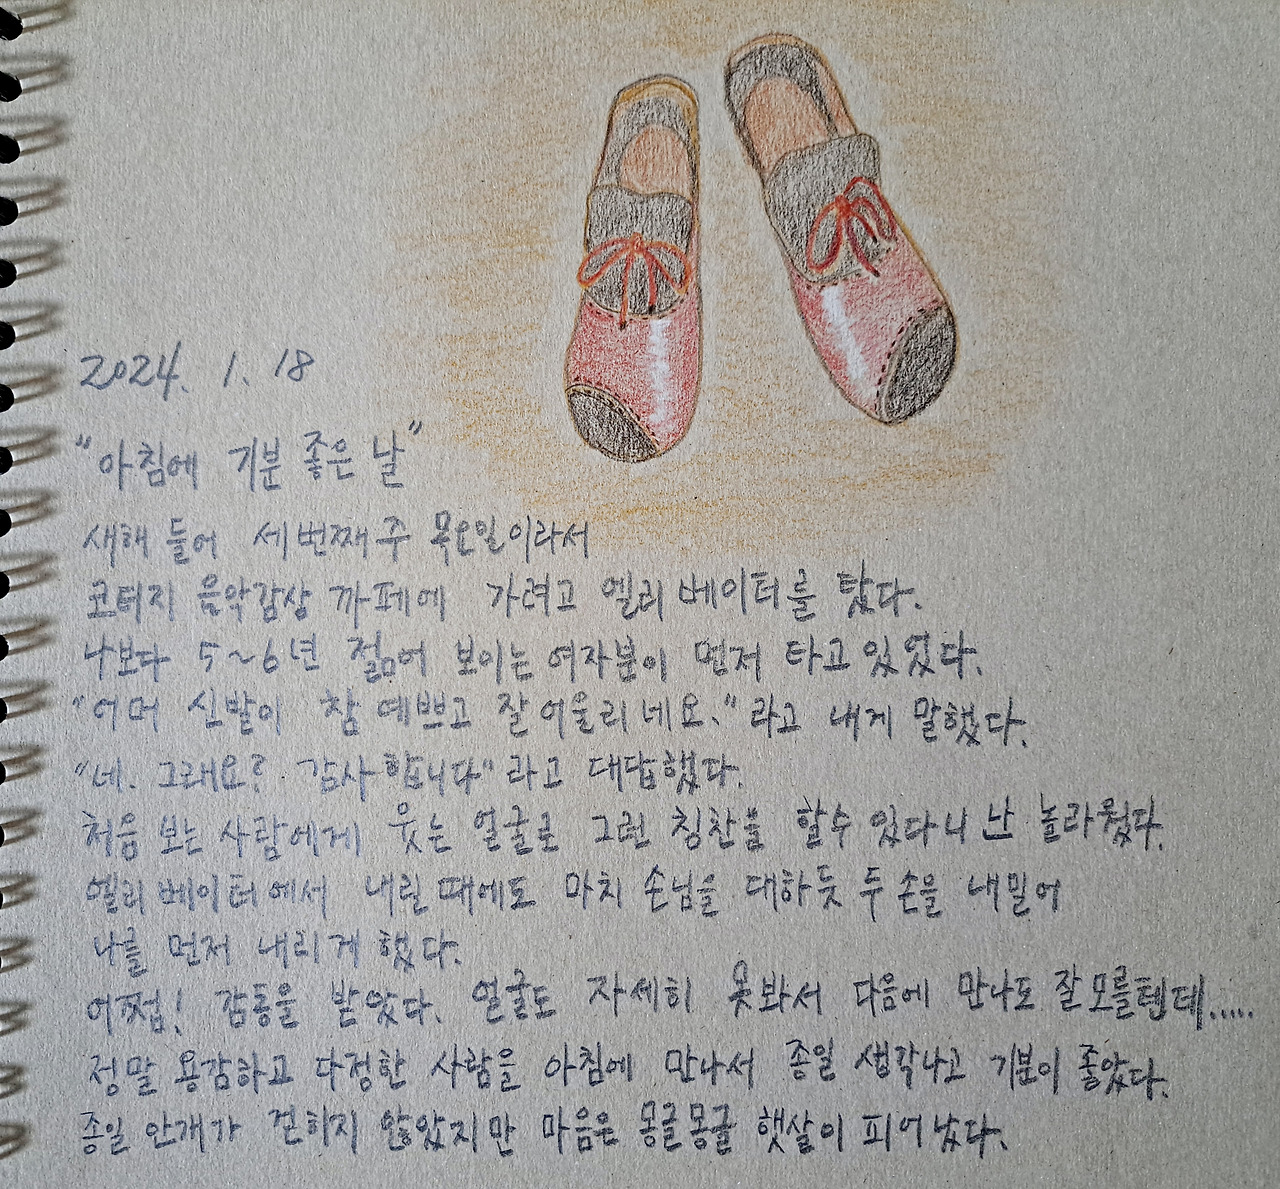 2024. 1. 18
"아침에 기분 좋은 날"
새해 들어 세번째 주 목요일이라서
코터지 음악감상 까페에 가려고 엘리베이터를 탔다.
나보다 5~6년 젊어 보이는 여자분이 먼저 타고 있었다.
"어머 신발이 참 예쁘고 잘 어울리네요." 라고 내게 말했다.
"네. 그래요? 감사합니다" 라고 대답했다.
처음 보는 사람에게 웃는 얼굴로 그런 칭찬을 할수 있다니 난 놀라웠다.
엘리베이터에서 내릴 때에도 마치 손님을 대하듯 두 손을 내밀어
나를 먼저 내리게 했다.
어쩜! 감동을 받았다. 얼굴도 자세히 못봐서 다음에 만나도 잘모를텐데.....
정말 용감하고 다정한 사람을 아침에 만나서 종일 생각나고 기분이 좋았다.
종일 안개가 걷히지 않았지만 마음은 몽글몽글 햇살이 피어났다.